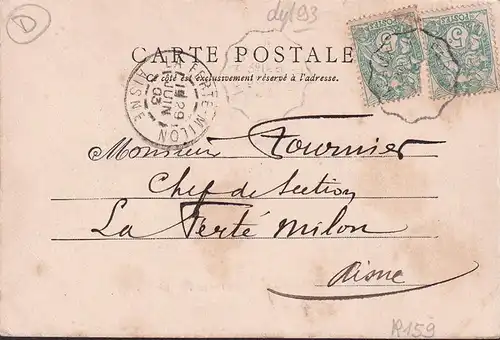 D
dyl93
CARTE POSTALE
Ce côté est exclusivement réservé à l'adresse.
POSTES
5
POSTES
5
LA FERTÉ-MILON
29
JUIN
03
AISNE
Monsieur Fournier
Chef de Section
La Ferté Milon
Aisne
R159